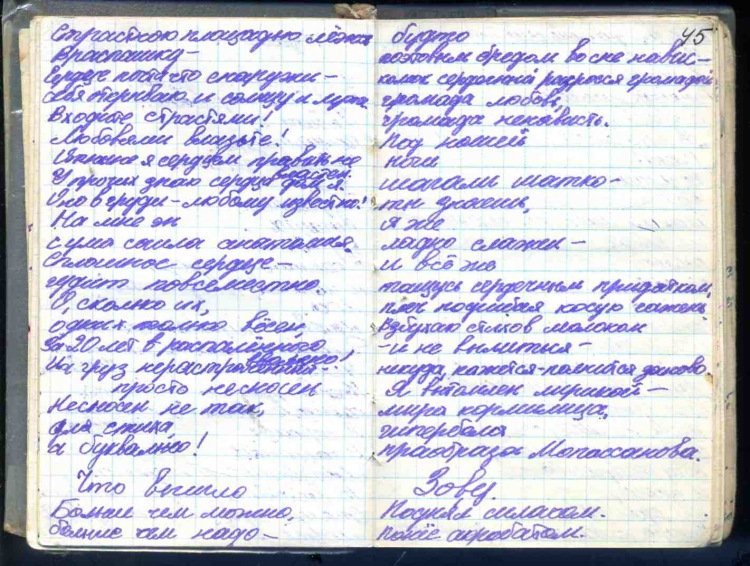 Страстною площадью лёжа
Враспашку—
Сердце почти что снаружи—
себя открываю и солнцу и луже.
Входите страстями!
Любовями влазьте!
Отныне я сердцем править не
властен.
У прочих знаю сердца дом я.
Оно в груди – любому известно!
На мне ж
с ума сошла анатомия.
Сплошное сердце –
гудит повсеместно.
О, сколько их,
одних только вёсен,
За 20 лет в распалённого
ввалено!
Их груз нерастраченный –
просто несносен
Несносен не так,
для стиха,
а буквально!
Что вышло
Больше чем можно,
больше чем надо –
45
будто
поэтовым бредом во сне навис –
комок сердечный разросся громадой
громада любовь,
громада ненависть.
Под ношей
ноги
шагали шатко –
ты знаешь,
я же
ладно слажен –
и всё же
тащусь сердечным придатком,
плеч подгибая косую сажень.
Взбухаю стихов молоком
– и не вылиться –
некуда, кажется – полнится заново.
Я вытомлен лирикой –
мира кормилица,
гипербола
праобраза Мопассанова.
Зову.
Поднял силачом.
понёс акробатом.